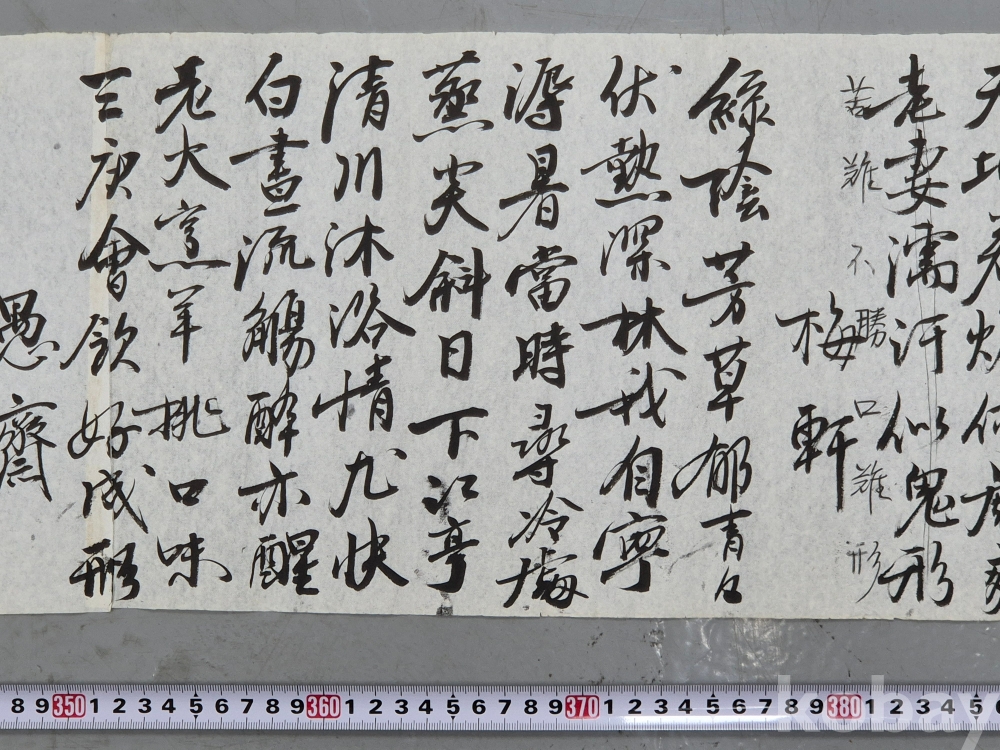 老妻濡汗似鬼形
苦難不勝口難形
梅軒
綠陰芳草郁青々
伏熱深林我自寧
溽暑當時尋冷處
蒸炎斜日下江亭
清川沐浴情尤快
白晝流觴醉亦醒
老大烹羊挑口味
三庚會飲好成形
愚齋
8 9 350 1 2 3 4 5 6 7 8 9 360 1 2 3 4 5 6 7 8 9 370 1 2 3 4 5 6 7 8 9 380 1 2 3 4 5
kobay